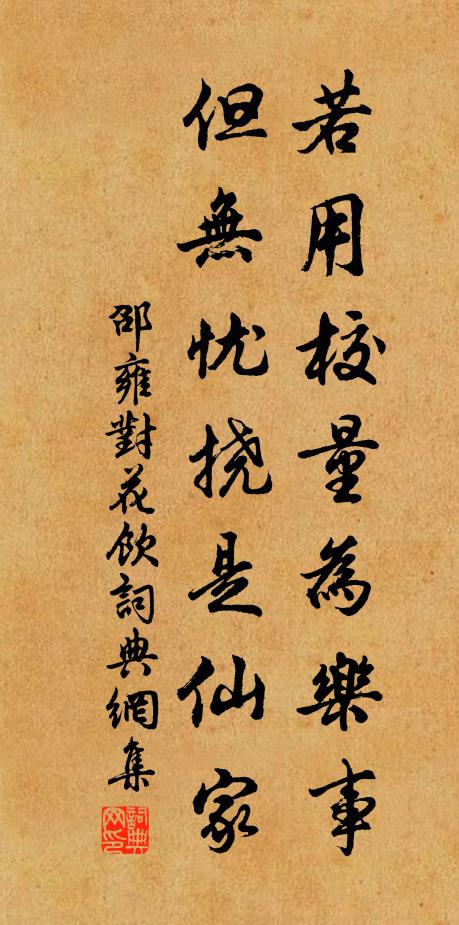 若用校量為樂事
但無忧挠是仙家
邵雍對花飲詞典網集
詞典网印